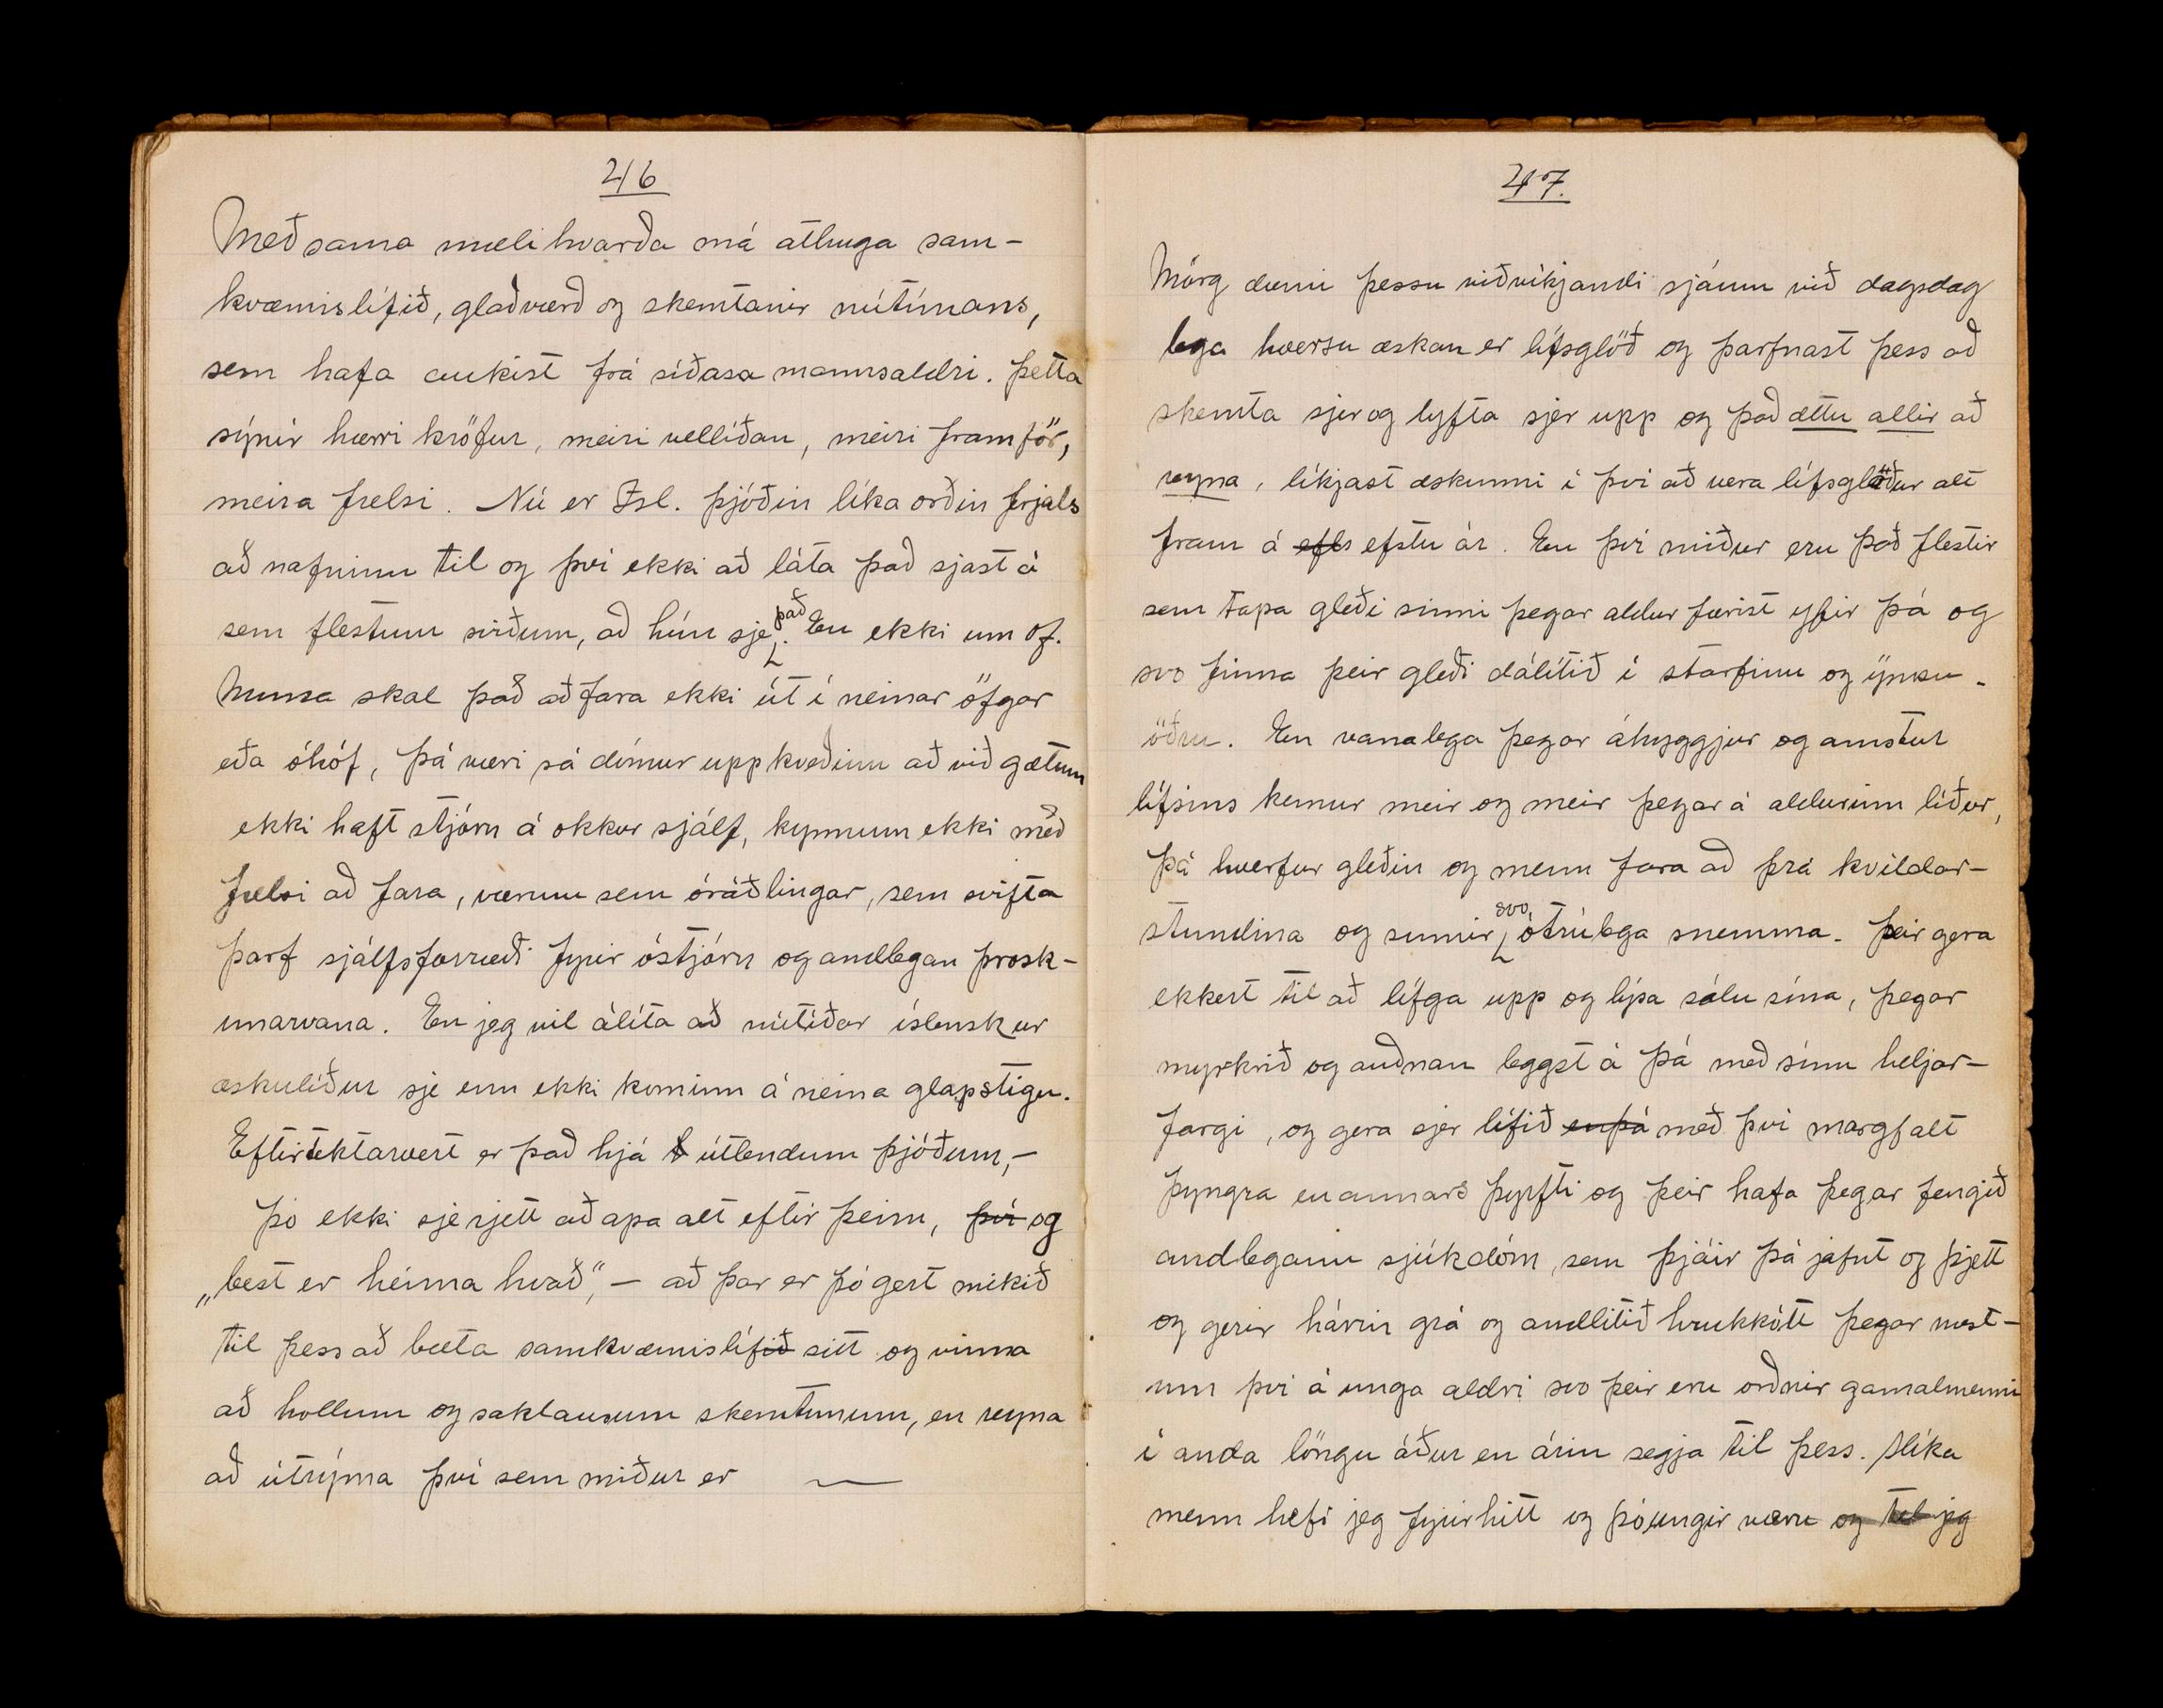 46
Með sama mælihvarða má athuga sam-
kvæmislífið, glaðværð og skemtanir nútímans,
sem hafa aukist frá síðasa mannsaldri. Þetta
sýnir hærri kröfur, meiri vellíðan, meiri framför,
meira frelsi. Nú er Ísl. þjóðin líka orðin frjals
að nafninu til og því ekki að láta það sjast á
sem flestum sviðum, að hún sje það. En ekki um of.
Muna skal það að fara ekki út í neinar öfgar
eða óhóf, þá væri sá dómur uppkveðinn að við gætum
ekki haft stjórn á okkur sjálf, kynnum ekki með
frelsi að fara, værum sem óráðlingar, sem svifta
þarf sjálfsforræði fyrir óstjórn og andlegan þrosk-
unarvana. En jeg vil álíta að nútíðar íslenskur
æskulíður sje enn ekki kominn á neina glapstigu.
Eftirtektarvert er það hjá útlendum þjóðum,-
þo ekki sje rjett að apa alt eftir þeim, því og
„best er heima hvað“, - að þar er þó gert mikið
til þess að bæta samkvæmislífið sitt og vinna
að hollum og saklausum skemtunum, en reyna
að útrýma því sem miður er —
47.
Mörg dæmi þessu viðvíkjandi sjáum við dagsdag
lega hversu æskan er lífsglöð og þarfnast þess að
skemta sjer og lyfta sjer upp og það ættu allir að
reyna, líkjast æskunni í því að vera lífsglöður alt
fram á efls efstu ár. En því miður eru það flestir
sem tapa gleði sinni þegar aldur færist yfir þá og
svo finna þeir gleði dálítið í starfinu og ýmsu.
öðru. En vanalega þegar áhyggjur og amstur
lífsins kemur meir og meir þegar á aldurinn líður,
þá hverfur gleðin og menn fara að þrá kvildar-
stundina og sumir svo ótrúlega snemma. Þeir gera
ekkert til að lífga upp og lýsa sálu sína, þegar
myrkrið og auðnan leggst á þá með sínu heljar-
fargi, og gera sjer lífið enþá með því margfalt
þyngra en annars þyrfti og þeir hafa þegar fengið
andlegann sjúkdóm, sem þjáir þá jafnt og þjett
og gerir hárin grá og andlitið hrukkótt þegar mest-
um því á unga aldri svo þeir eru orðnir gamalmenni
í anda löngu áður en árin segja til þess. Slíka
menn hefi jeg fyrirhitt og þó ungir væru og tel jeg